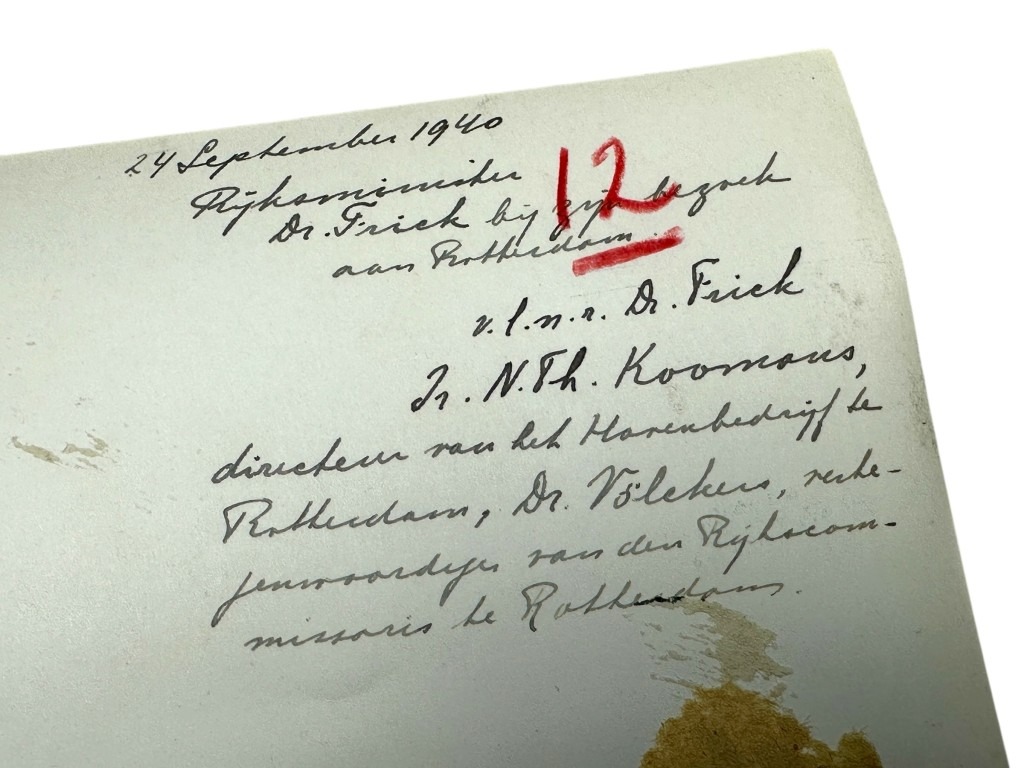 24 September 1940
Rijksminister
12
Dr. Frick bij zijn bezoek
aan Rotterdam.
v.l.n.r. Dr. Frick
Ir. N.Th. Koomans,
directeur van het Havenbedrijf te
Rotterdam, Dr. Völckers, verte-
genwoordiger van den Rijkscom-
missaris te Rotterdam.